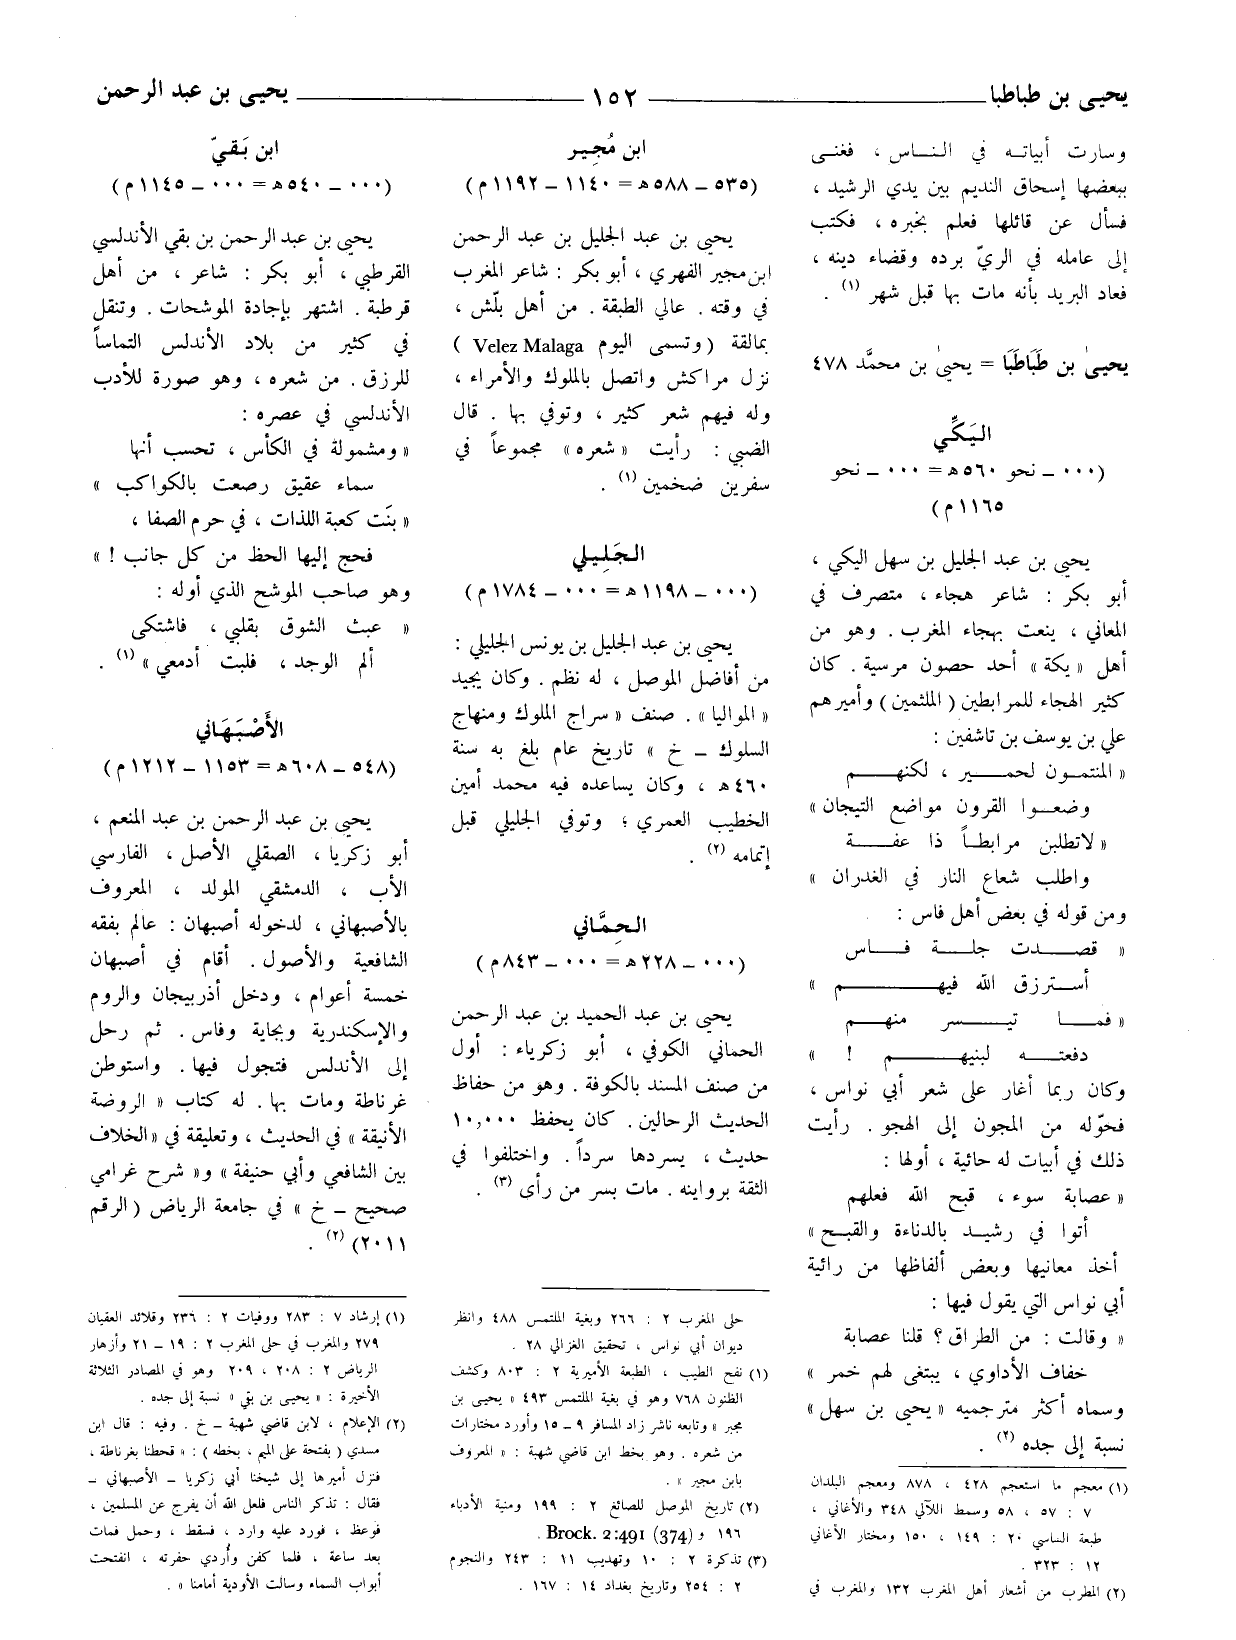 يحيى بن طباطبا ــــــ ١٥٢ ــــــ يحيى بن عبد الرحمن
وسارت أبياته في الناس ، فغنى
ببعضها إسحاق النديم بين يدي الرشيد ،
فسأل عن قائلها فعلم بخبره ، فكتب
إلى عامله في الريّ برده وقضاء دينه ،
فعاد البريد بأنه مات بها قبل شهر (١) .
يحيىٰ بن طَبَاطَبَا = يحيىٰ بن محمَّد ٤٧٨
اليَكِّي
(٠٠٠ ـ نحو ٥٦٠ هـ = ٠٠٠ ـ نحو
١١٦٥ م)
يحيى بن عبد الجليل بن سهل اليكي ،
أبو بكر : شاعر هجاء ، متصرف في
المعاني ، ينعت بهجاء المغرب . وهو من
أهل « يكة » أحد حصون مرسية . كان
كثير الهجاء للمرابطين ( الملثمين ) وأميرهم
علي بن يوسف بن تاشفين :
« المنتمون لحمير ، لكنهم
وضعوا القرون مواضع التيجان »
« لاتطلبن مرابطاً ذا عفة
واطلب شعاع النار في الغدران »
ومن قوله في بعض أهل فاس :
« قصدت جلة فاس
أسترزق الله فيهم »
« فما تيسر منهم
دفعته لبنيهم ! »
وكان ربما أغار على شعر أبي نواس ،
فحوّله من المجون إلى الهجو . رأيت
ذلك في أبيات له حائية ، أولها :
« عصابة سوء ، قبح الله فعلهم
أتوا في رشيد بالدناءة والقبح »
أخذ معانيها وبعض ألفاظها من رائية
أبي نواس التي يقول فيها :
« وقالت : من الطراق ؟ قلنا عصابة
خفاف الأداوي ، يبتغى لهم خمر »
وسماه أكثر مترجميه « يحيى بن سهل »
نسبة إلى جده (٢) .
(١) معجم ما استعجم ٤٢٨ ، ٨٧٨ ومعجم البلدان
٧ : ٥٧ ، ٥٨ وسمط اللآلي ٣٤٨ والأغاني ،
طبعة الساسي ٢٠ : ١٤٩ ، ١٥٠ ومختار الأغاني
١٢ : ٣٢٣ .
(٢) المطرب من أشعار أهل المغرب ١٣٢ والمغرب في
ابن مُجِير
(٥٣٥ ـ ٥٨٨ هـ = ١١٤٠ ـ ١١٩٢ م)
يحيى بن عبد الجليل بن عبد الرحمن
ابن مجير الفهري ، أبو بكر : شاعر المغرب
في وقته . عالي الطبقة . من أهل بلّش ،
بمالقة ( وتسمى اليوم Velez Malaga )
نزل مراكش واتصل بالملوك والأمراء ،
وله فيهم شعر كثير ، وتوفي بها . قال
الضبي : رأيت « شعره » مجموعاً في
سفرين ضخمين (١) .
الجَلِيلي
(٠٠٠ ـ ١١٩٨ هـ = ٠٠٠ ـ ١٧٨٤ م)
يحيى بن عبد الجليل بن يونس الجليلي :
من أفاضل الموصل ، له نظم . وكان يجيد
« المواليا » . صنف « سراج الملوك ومنهاج
السلوك ـ خ » تاريخ عام بلغ به سنة
٤٦٠ هـ ، وكان يساعده فيه محمد أمين
الخطيب العمري ؛ وتوفي الجليلي قبل
إتمامه (٢) .
الحِمَّاني
(٠٠٠ ـ ٢٢٨ هـ = ٠٠٠ ـ ٨٤٣ م)
يحيى بن عبد الحميد بن عبد الرحمن
الحماني الكوفي ، أبو زكرياء : أول
من صنف المسند بالكوفة . وهو من حفاظ
الحديث الرحالين . كان يحفظ ١٠,٠٠٠
حديث ، يسردها سرداً . واختلفوا في
الثقة بروايته . مات بسر من رأى (٣) .
حلى المغرب ٢ : ٢٦٦ وبغية الملتمس ٤٨٨ وانظر
ديوان أبي نواس ، تحقيق الغزالي ٢٨ .
(١) نفح الطيب ، الطبعة الأميرية ٢ : ٨٠٣ وكشف
الظنون ٧٦٨ وهو في بغية الملتمس ٤٩٣ « يحيى بن
مجبر » وتابعه ناشر زاد المسافر ٩ ـ ١٥ وأورد مختارات
من شعره . وهو بخط ابن قاضي شهبة : « المعروف
بابن مجير » .
(٢) تاريخ الموصل للصائغ ٢ : ١٩٩ ومنية الأدباء
١٩٦ و Brock. 2:491 (374) .
(٣) تذكرة ٢ : ١٠ وتهذيب ١١ : ٢٤٣ والنجوم
٢ : ٢٥٤ وتاريخ بغداد ١٤ : ١٦٧ .
ابن بَقيّ
(٠٠٠ ـ ٥٤٠ هـ = ٠٠٠ ـ ١١٤٥ م)
يحيى بن عبد الرحمن بن بقي الأندلسي
القرطبي ، أبو بكر : شاعر ، من أهل
قرطبة . اشتهر بإجادة الموشحات . وتنقل
في كثير من بلاد الأندلس التماساً
للرزق . من شعره ، وهو صورة للأدب
الأندلسي في عصره :
« ومشمولة في الكأس ، تحسب أنها
سماء عقيق رصعت بالكواكب »
« بنَت كعبة اللذات ، في حرم الصفا ،
فحج إليها الحظ من كل جانب ! »
وهو صاحب الموشح الذي أوله :
« عبث الشوق بقلبي ، فاشتكى
ألم الوجد ، فلبت أدمعي » (١) .
الأَصْبَهَاني
(٥٤٨ ـ ٦٠٨ هـ = ١١٥٣ ـ ١٢١٢ م)
يحيى بن عبد الرحمن بن عبد المنعم ،
أبو زكريا ، الصقلي الأصل ، الفارسي
الأب ، الدمشقي المولد ، المعروف
بالأصبهاني ، لدخوله أصبهان : عالم بفقه
الشافعية والأصول . أقام في أصبهان
خمسة أعوام ، ودخل أذربيجان والروم
والإسكندرية وبجاية وفاس . ثم رحل
إلى الأندلس فتجول فيها . واستوطن
غرناطة ومات بها . له كتاب « الروضة
الأنيقة » في الحديث ، وتعليقة في « الخلاف
بين الشافعي وأبي حنيفة » و« شرح غرامي
صحيح ـ خ » في جامعة الرياض ( الرقم
٢٠١١) (٢) .
(١) إرشاد ٧ : ٢٨٣ ووفيات ٢ : ٢٣٦ وقلائد العقيان
٢٧٩ والمغرب في حلى المغرب ٢ : ١٩ ـ ٢١ وأزهار
الرياض ٢ : ٢٠٨ ، ٢٠٩ وهو في المصادر الثلاثة
الأخيرة : « يحيى بن بقي » نسبة إلى جده .
(٢) الإعلام ، لابن قاضي شهبة ـ خ . وفيه : قال ابن
مسدي ( بفتحة على الميم ، بخطه ) : « قحطنا بغرناطة ،
فنزل أميرها إلى شيخنا أبي زكريا ـ الأصبهاني ـ
فقال : تذكر الناس فلعل الله أن يفرج عن المسلمين ،
فوعظ ، فورد عليه وارد ، فسقط ، وحمل فمات
بعد ساعة ، فلما كفن وأُردي حفرته ، انفتحت
أبواب السماء وسالت الأودية أمامنا » .